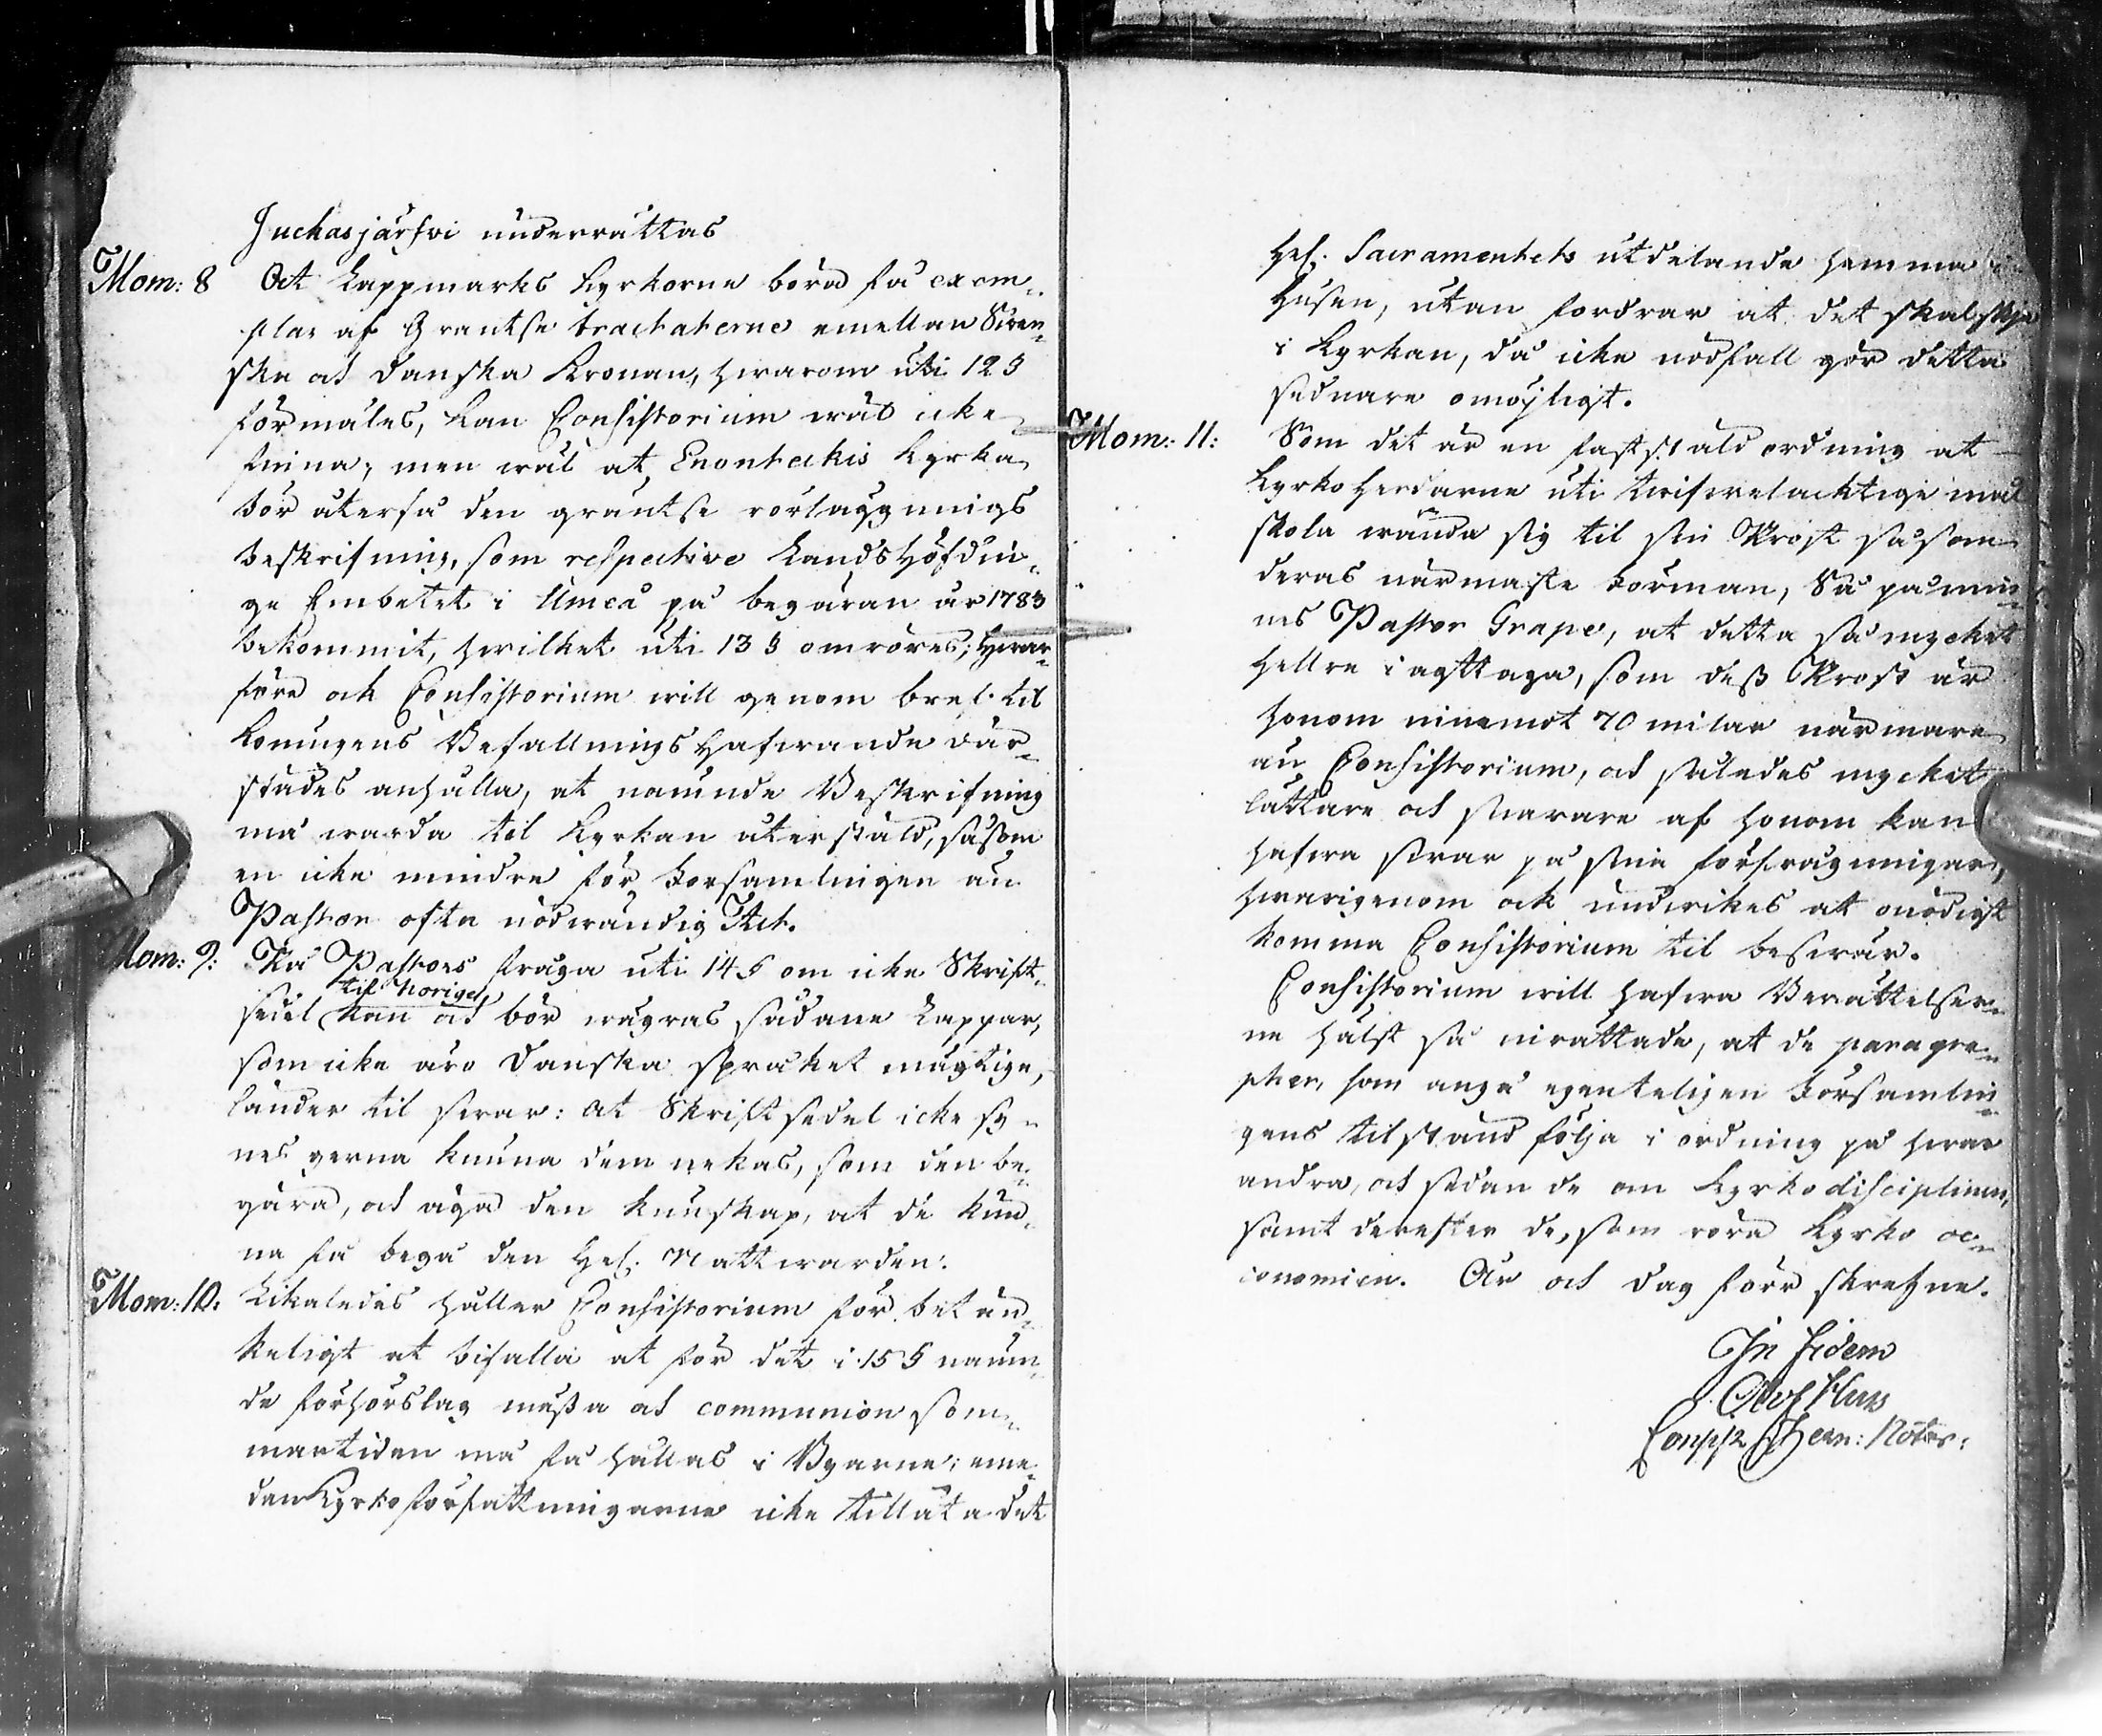 Juchasjärfvi underrättas
Mom: 8 At Lappmarks Kyrkorne böra få exem-
plar af Gräntse tractaterne emellan Swen-
ska och Danska Kronan, hwarom uti 12 §
förmäles, kan Consistorium wäl icke
finna; men wäl at Enontekis Kyrka
bör återfå den gräntse rörläggnings
beskrifning, som respective Landshöfdin-
ge Embetet i Umeå på begäran år 1783
bekommit, hwilket uti 13 § omröres; hwar-
före ock Consistorium will genom bref til
Konungens Befallningshafwande där-
städes anhålla, at nämnde Beskrifning
må warda til Kyrkan återstäld, såsom
en icke mindre för Församlingen än
Pastor ofta nödwändig Act.
Mom: 9: På Pastors fråga uti 14 § om icke Skrift-
til Norige
sedel kan och bör wägras sådane Lappar,
som icke äro Danska språket mägtige,
länder til swar: at Skriftsedel icke sy-
nes gerna kunna dem nekas, som den be-
gära, och äga den kunskap, at de kun-
na få begå den Hel. Nattwarden.
Mom: 10: Likaledes håller Consistorium för betän-
keligt at bifalla at för det i 15 § nämn-
de förhörslag mässa och communion som-
martiden må få hållas i Byarne; eme-
dan Kyrkoförfattningarne icke tillåta det
Hel. Sacramentets utdelande hemma i
husen, utan fordrar at det skal skje
i Kyrkan, då icke nödfall gör detta
sednare omöjligt.
Mom: 11: Som det är en faststäld ordning at
Kyrkoherdarne uti twifwelacktige mål
skola wända sig til sin Prost såsom
deras närmaste Förman, Så påmin-
nes Pastor Grape, at detta så mycket
hellre iagttaga, som dess Prost är
honom inemot 70 milar närmare
än Consistorium, och således mycket
lättare och snarare af honom kan
hafwa swar på sina förfrågningar,
hwarigenom ock undwikes at onödigt
komma Consistorium til beswär.
Consistorium will hafwa Berättelser-
ne hälst så inrättade, at de paragra-
pher, som angå egenteligen Församlin-
gens tilstånd följa i ordning på hwar
andra, och sedan de om Kyrkodisciplinen,
samt derefter de, som röra Kyrko oe-
conomien. År och dag förr skrefne.
In fidem
Olof
Notar: